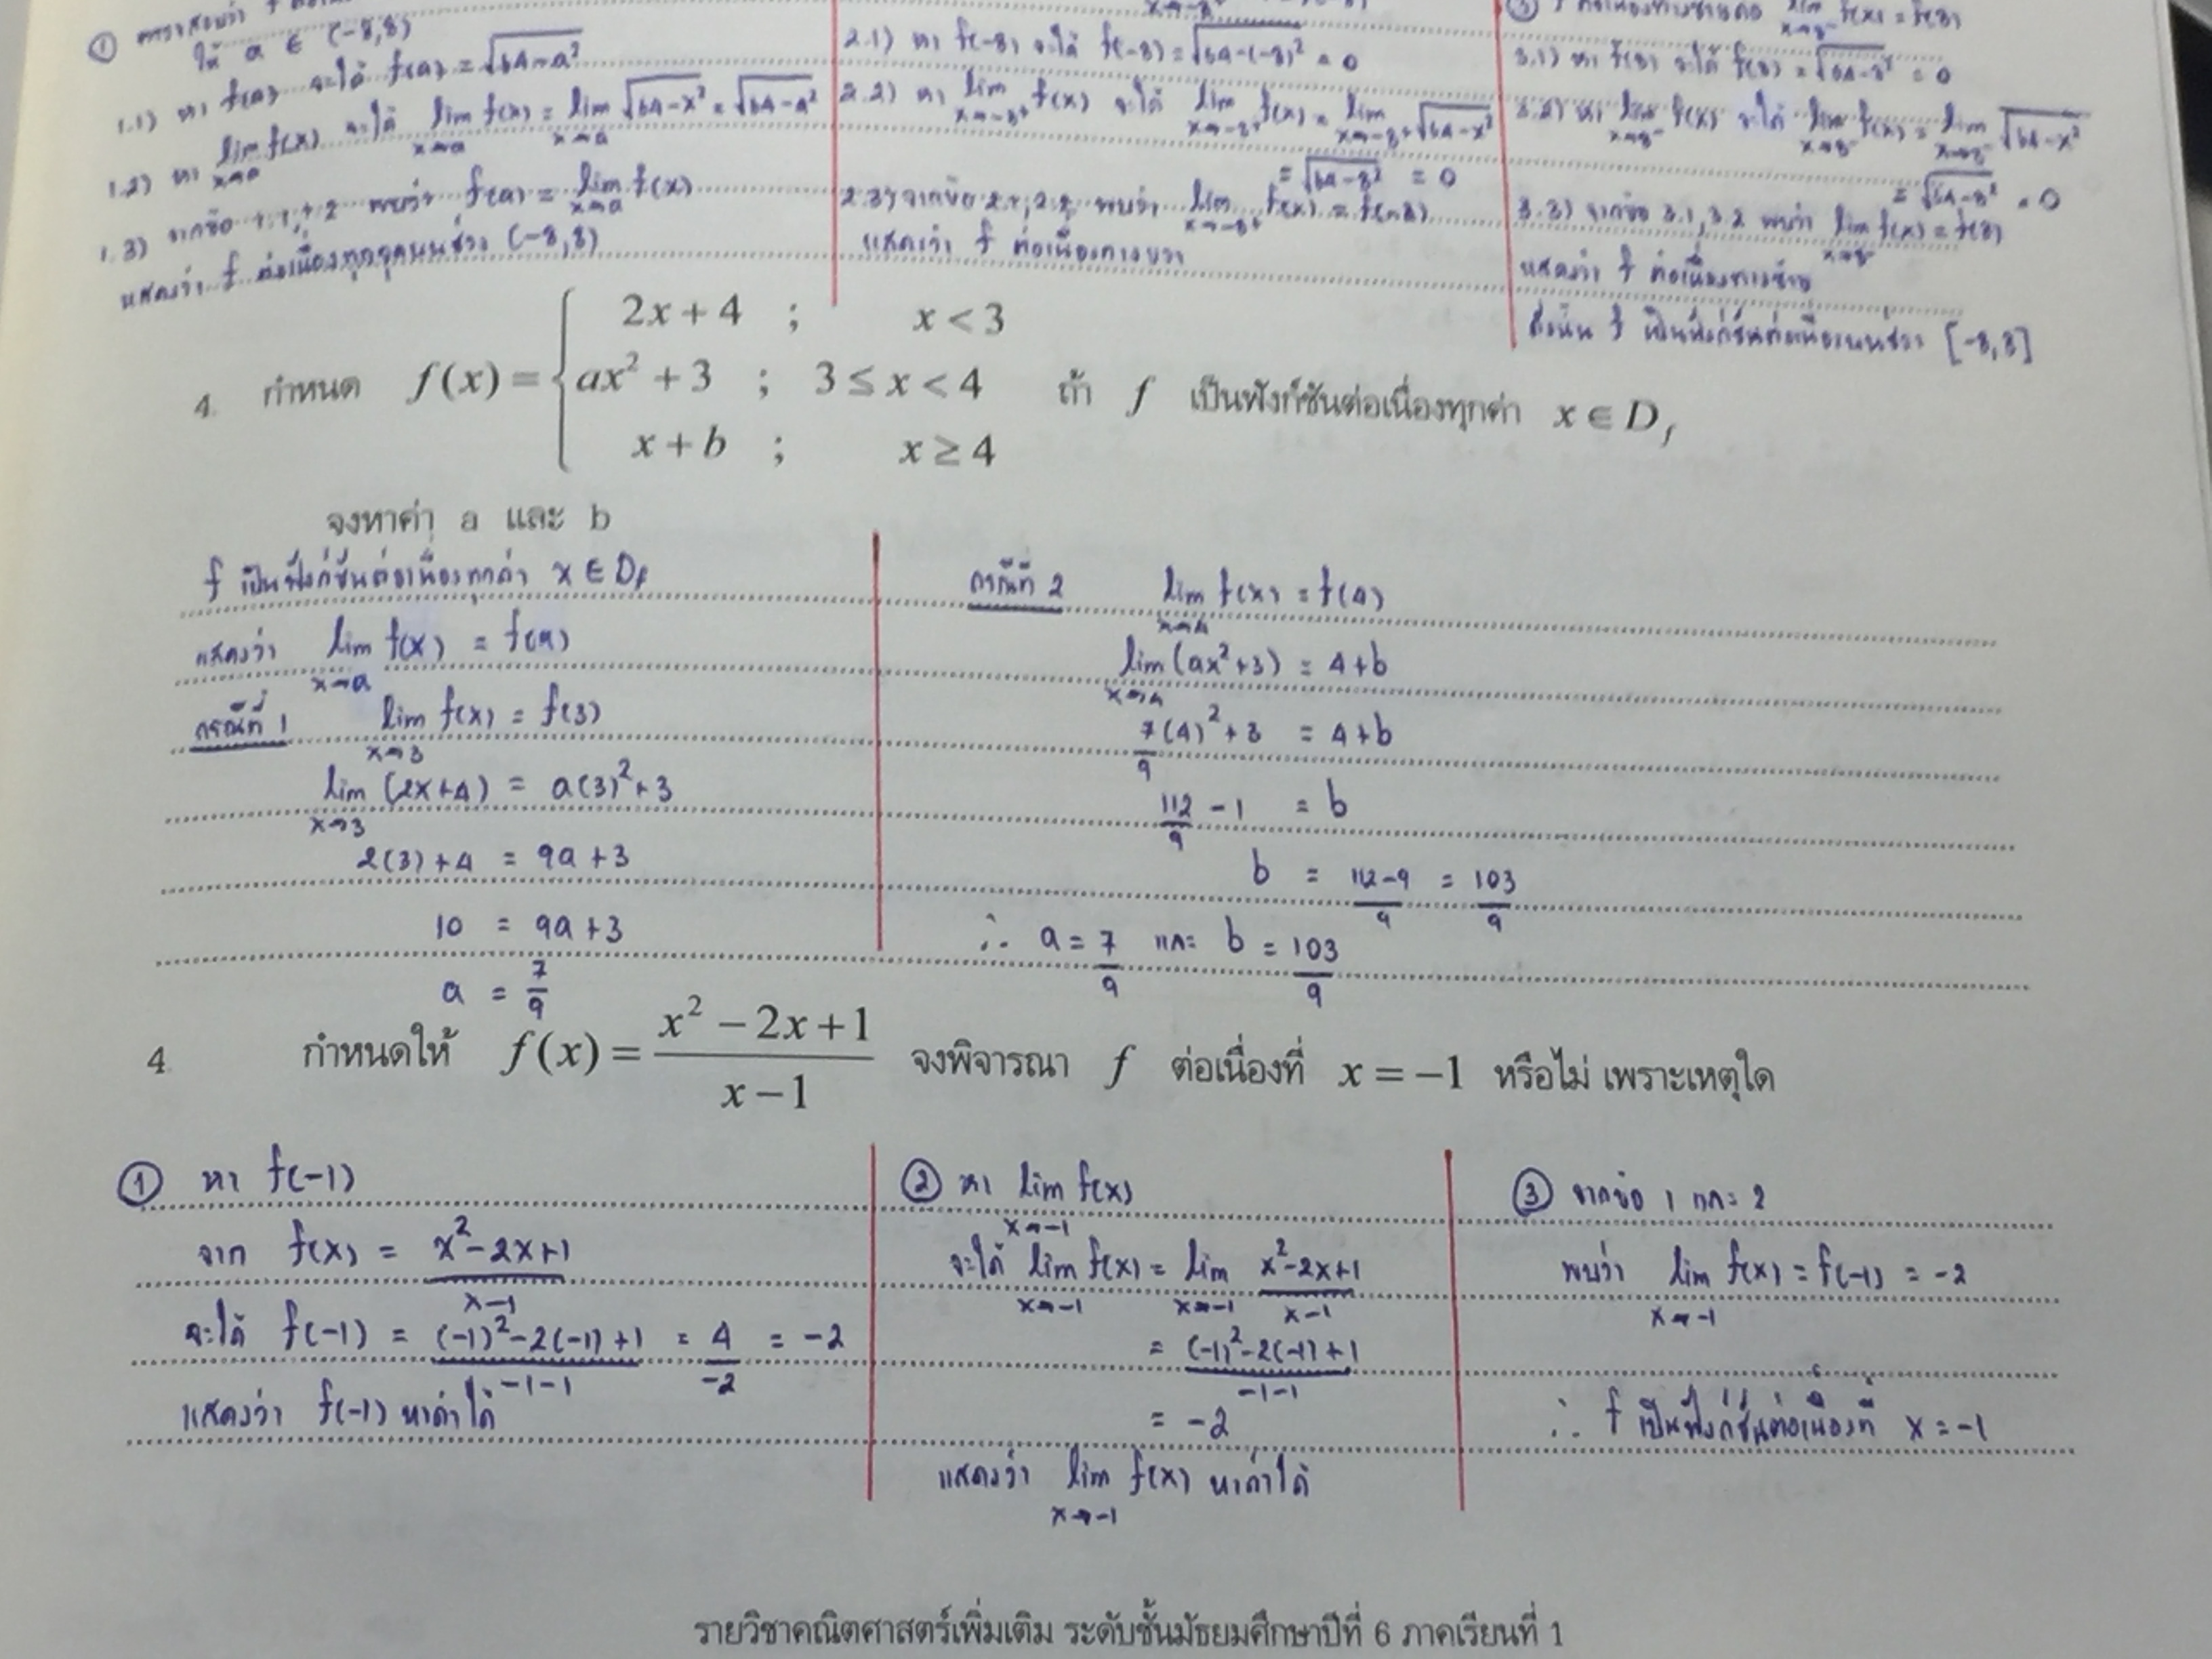 ① ตรวจสอบว่า f
ให้ a ∈ (-8,8)
1.1) หา f(a) จะได้ f(a) = √(64-a²)
1.2) หา lim f(x) จะได้ lim f(x) = lim √(64-x²) = √(64-a²)
x→a x→a x→a
1.3) จากข้อ 1.1, 1.2 พบว่า f(a) = lim f(x)
x→a
แสดงว่า f ต่อเนื่องทุกจุดบนช่วง (-8,8)
2.1) หา f(-8) จะได้ f(-8) = √(64-(-8)²) = 0
2.2) หา lim f(x) จะได้ lim f(x) = lim √(64-x²)
x→-8⁺ x→-8⁺ x→-8⁺
= √(64-8²) = 0
2.3) จากข้อ 2.1, 2.2 พบว่า lim f(x) = f(-8)
x→-8⁺
แสดงว่า f ต่อเนื่องทางขวา
③ f ต่อเนื่องทางซ้ายคือ lim f(x) = f(8)
x→8⁻
3.1) หา f(8) จะได้ f(8) = √(64-8²) = 0
3.2) หา lim f(x) จะได้ lim f(x) = lim √(64-x²)
x→8⁻ x→8⁻ x→8⁻
= √(64-8²) = 0
3.3) จากข้อ 3.1, 3.2 พบว่า lim f(x) = f(8)
x→8⁻
แสดงว่า f ต่อเนื่องทางซ้าย
ดังนั้น f เป็นฟังก์ชันต่อเนื่องบนช่วง [-8,8]
4. กำหนด f(x) = { 2x+4 ; x<3
ax²+3 ; 3≤x<4 ถ้า f เป็นฟังก์ชันต่อเนื่องทุกค่า x∈D_f
x+b ; x≥4
จงหาค่า a และ b
f เป็นฟังก์ชันต่อเนื่องทุกค่า x ∈ D_f
แสดงว่า lim f(x) = f(a)
x→a
กรณีที่ 1 lim f(x) = f(3)
x→3
lim (2x+4) = a(3)²+3
x→3
2(3)+4 = 9a+3
10 = 9a+3
a = 7/9
กรณีที่ 2 lim f(x) = f(4)
x→4
lim (ax²+3) = 4+b
x→4
7/9(4)²+3 = 4+b
112/9 - 1 = b
b = 112-9/9 = 103/9
∴ a = 7/9 และ b = 103/9
4. กำหนดให้ f(x) = x²-2x+1/x-1 จงพิจารณา f ต่อเนื่องที่ x = -1 หรือไม่ เพราะเหตุใด
① หา f(-1)
จาก f(x) = x²-2x+1/x-1
จะได้ f(-1) = (-1)²-2(-1)+1/-1-1 = 4/-2 = -2
แสดงว่า f(-1) หาค่าได้
② หา lim f(x)
x→-1
จะได้ lim f(x) = lim x²-2x+1/x-1
x→-1 x→-1
= (-1)²-2(-1)+1/-1-1
= -2
แสดงว่า lim f(x) หาค่าได้
x→-1
③ จากข้อ 1 และ 2
พบว่า lim f(x) = f(-1) = -2
x→-1
∴ f เป็นฟังก์ชันต่อเนื่องที่ x = -1
รายวิชาคณิตศาสตร์เพิ่มเติม ระดับชั้นมัธยมศึกษาปีที่ 6 ภาคเรียนที่ 1